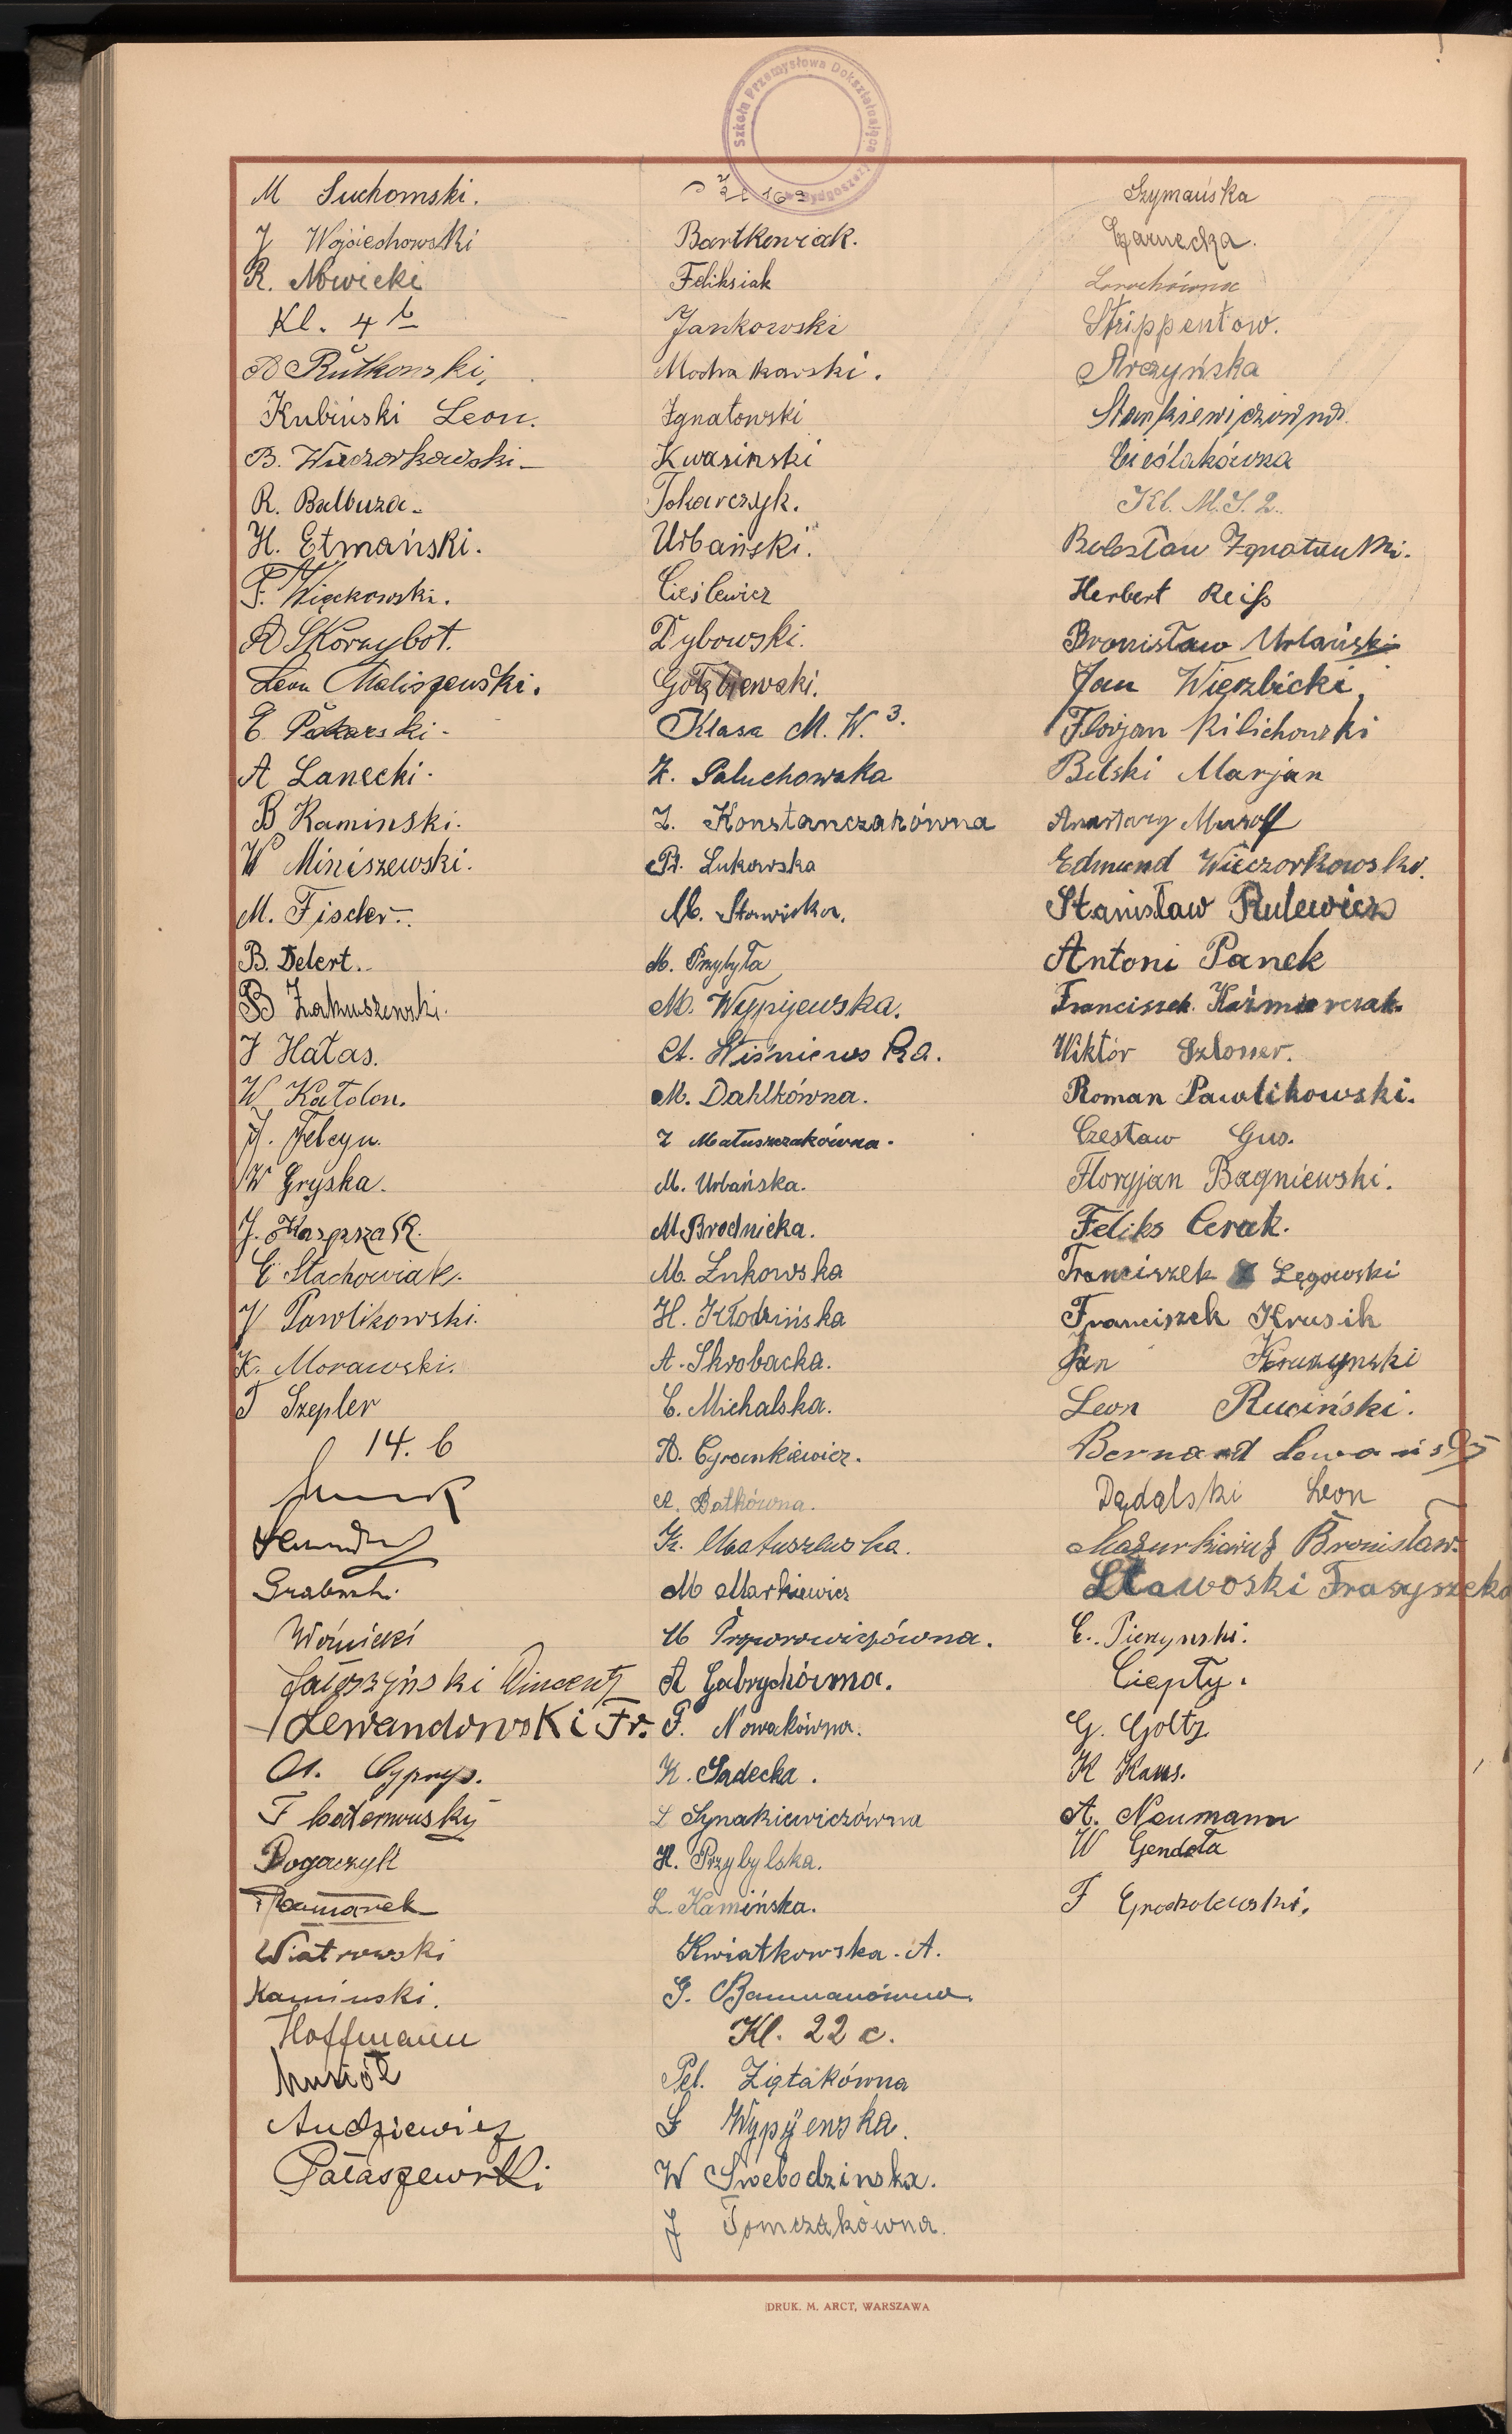 Szkoła Przemysłowa Dokształcająca Bydgoszcz
M Suchomski.
J Wojciechowski
R. Nowicki
Kl. 4 b
A Rutkowski,
Kubiński Leon.
B. Wieczorkowski
R. Balbuza.
H. Etmański.
F. Więckowski.
A Skórzybot.
Leon Maliszewski.
E. Pakarski.
A Lanecki.
B Kaminski.
W Miniszewski.
M. Fischer.
B. Delert.
B Zakuszewski.
J Hałas.
W Katolon.
J. Felcyn.
W Gryska.
J. Kasprzak.
E Stachowiak.
J Pawlikowski.
K. Morawski.
T Szepler
14. b
Woźnicki
Wincenty
Lewandowski Fr.
A. Cyprys.
F
Rogaczyk
Wiatrowski
Kaminski.
Hoffmann
Musiół
Audziewicz
Pałaszewski
Bartkowiak.
Feliksiak
Jankowski
Ignatowski
Kwasinski
Tokarczyk.
Urbański.
Cieślewicz
Dybowski.
Gołębiewski.
Klasa M. W. 3.
Z. Paluchowska
Z. Konstanczakówna
Pr. Lukowska
M. Sławińska.
M. Przybyła
M. Wypijewska.
A. Wiśniewska.
M. Dahlkówna.
Z Matuszczakówna.
M. Urbańska.
M Brodnicka.
M. Żukowska
H. Kłodzińska
A. Skrobacka.
C. Michalska.
A. Cyrankiewicz.
A. Batkówna.
K. Matuszewska.
M Markiewicz
A Gabrychówna.
F. Nowakówna.
K. Sadecka.
L Synakiewiczówna
H. Przybylska.
L. Kamińska.
Kwiatkowska. A.
G. Baumanówna.
Kl. 22 c.
Pel. Ziętakówna
S Wypijewska.
W Swebodzinska.
J Tomczakówna.
Szymańska
Czarnecka.
Strippentow.
Arczyńska
Stankiewiczówna.
Cieślakówna
Kl. M.S. 2.
Bolesław Ignatowski.
Herbert Reiß
Bronisław Urbański
Jan Wierzbicki,
Florjan Kilichowski
Belski Marjan
Anastazy Musolf
Edmund Wieczorkowski.
Stanisław Rulewicz
Antoni Panek
Franciszek Kaźmierczak.
Wiktór Szlosser.
Roman Pawlikowski.
Czesław Gus.
Floryjan Bagniewski.
Feliks Cerak.
Franciszek Łęgowski
Franciszek Krusik
Jan Kruszynski
Leon Ruciński.
Bernard Lewański
Dądalski Leon
Mazurkiewicz Bronisław.
Sławoski Frasyszek
C. Pierzynski.
Ciepły.
G. Goltz
K Kaus.
A. Neumann
W Gendeła
F Grocholewski.
DRUK. M. ARCT, WARSZAWA